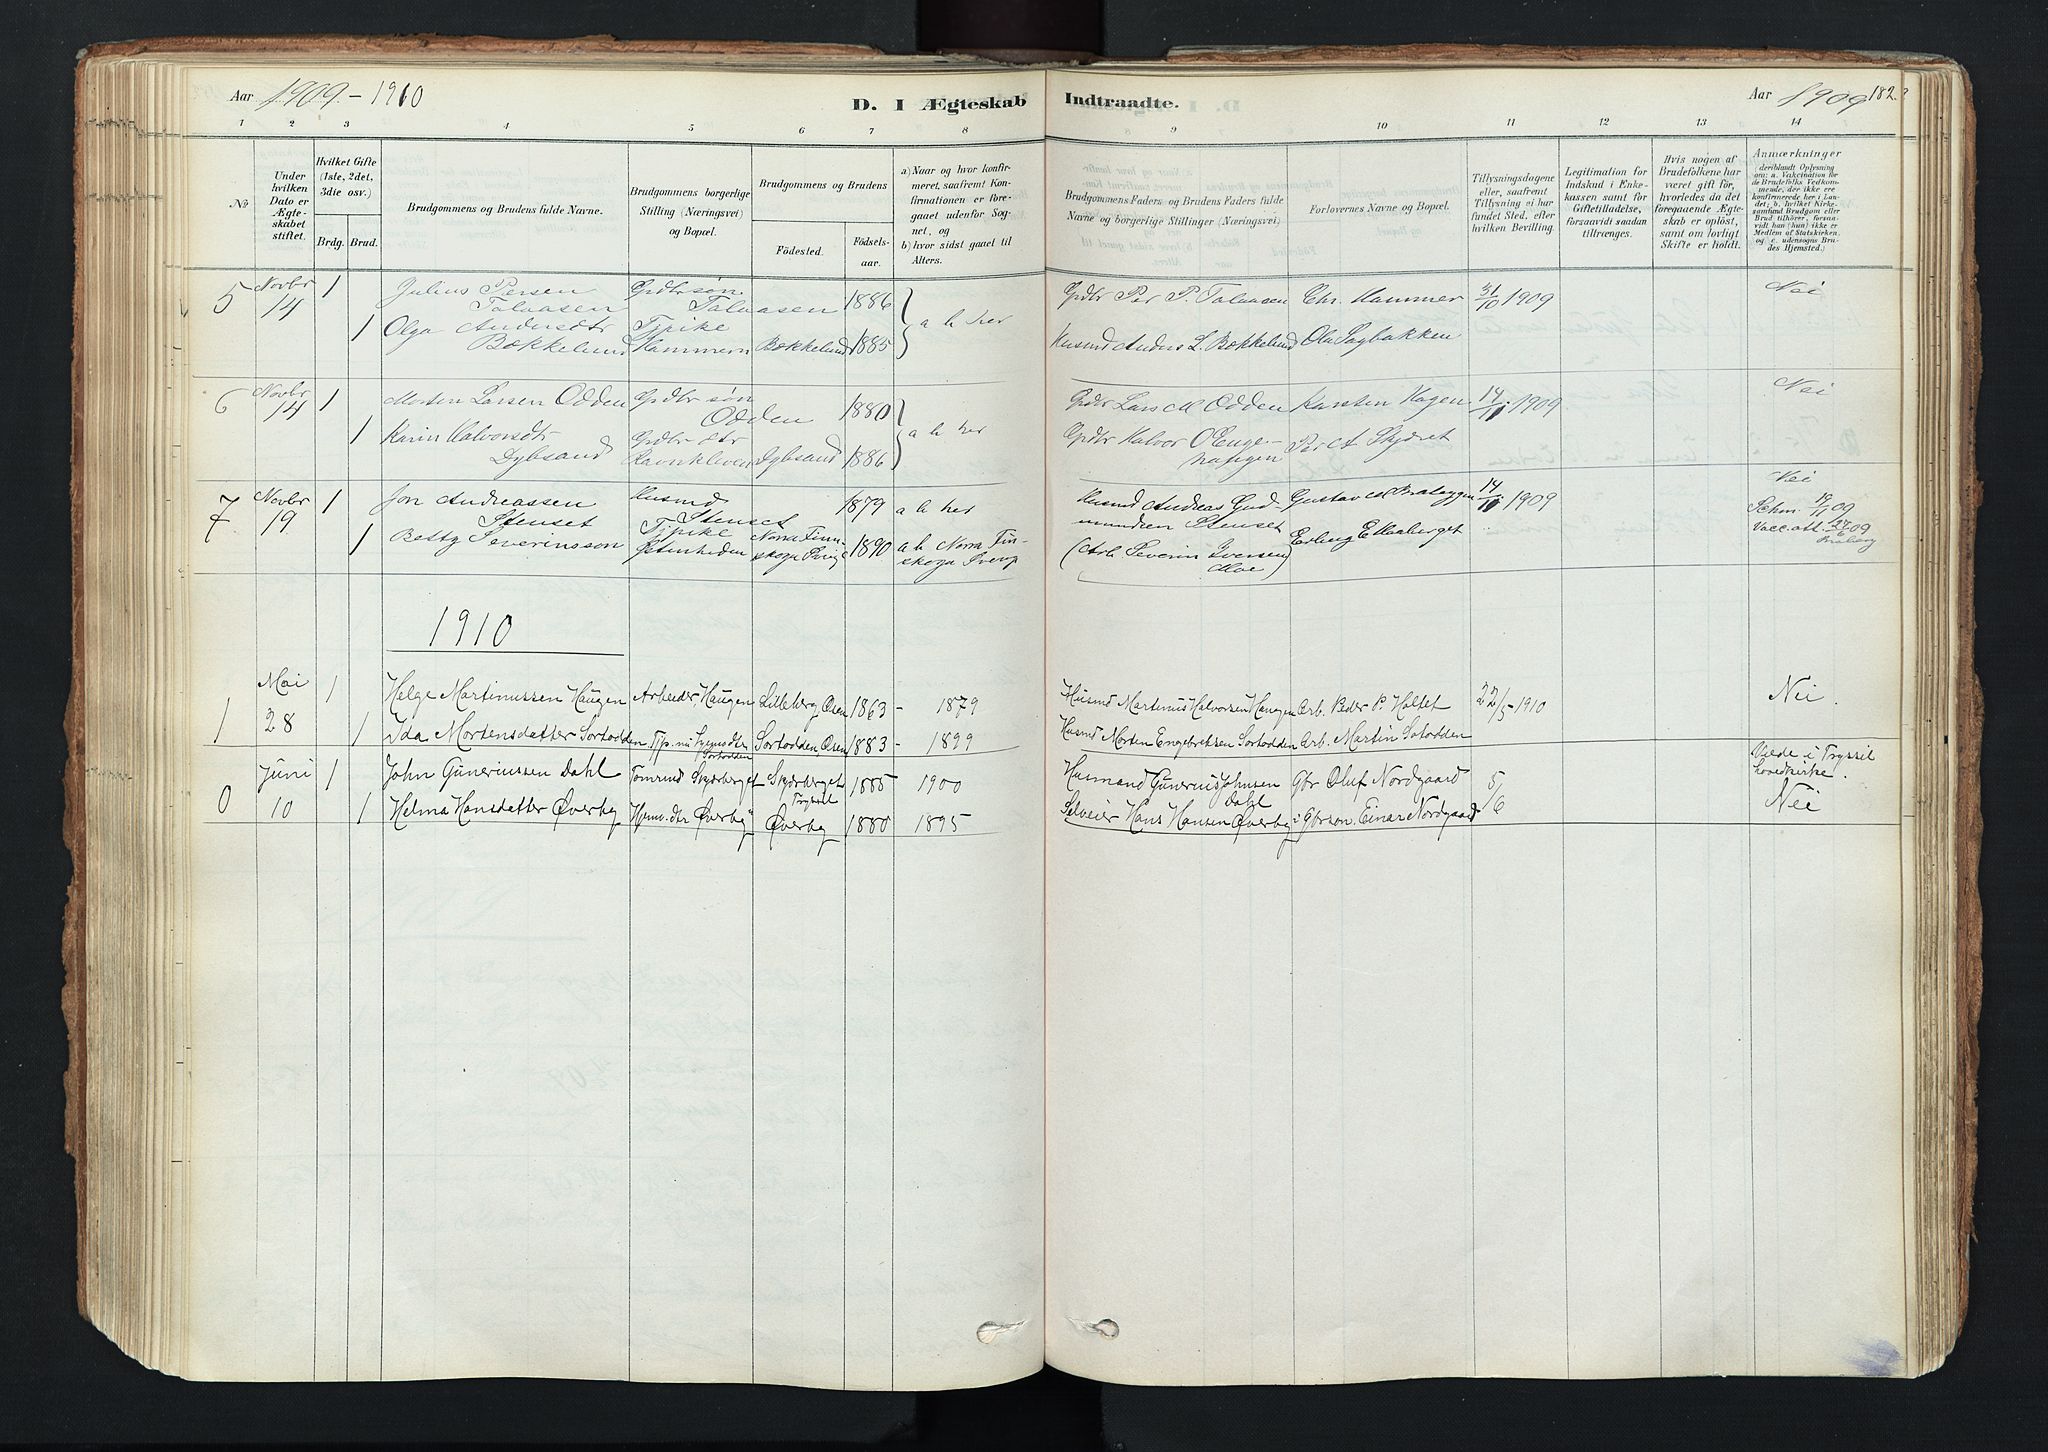 Aar 1909.-1910
D. I Ægteskab
Indtraadte.
Aar 1909
182.
1 2 3 4 5 6 7 8 9 10 11 12 13 14
No
Under hvilken Dato er Ægteskabet stiftet.
Hvilket Gifte (1ste, 2det, 3die osv.)
Brdg. Brud.
Brudgommens og Brudens fulde Navne.
Brudgommens borgerlige Stilling (Næringsvei) og Bopæl.
Brudgommens og Brudens
Fødested.
Fødselsaar.
a) Naar og hvor konfirmeret, saafremt Konfirmationen er foregaaet udenfor Sognet, og
b) hvor sidst gaaet til Alters.
Brudgommens Faders og Brudens Faders fulde Navne og borgerlige Stillinger (Næringsvei)
Forlovernes Navne og Bopæl.
Tillysningsdagene eller, saafremt Tillysning ei har fundet Sted, efter hvilken Bevilling.
Legitimation for Indskud i Enkekassen samt for Giftetilladelse, forsaavidt saadan tiltrænges.
Hvis nogen af Brudefolkene har været gift før, hvorledes da det foregaaende Ægteskab er opløst, samt om lovligt Skifte er holdt.
Anmærkninger
deriblandt Oplysning om: a. Vakcination for de Brudefolks Vedkommende, der ikke ere konfirmerede her i Landet; b. hvilket Kirkesamfund Brudgom eller Brud tilhører, forsaavidt han (hun) ikke er Medlem af Statskirken, og c. udensogns Brudes Hjemsted.)
5 Novbr 14 1 Julius Persen Talaasen Grdbr søn Talaasen 1886 a b her Grdbr Per P. Talaasen Chr. Hammer 31/10 1909 Nei
1 Olga Andersdtr Bækkelund Tjpike Hammern Bækkelund 1885 Husmd Anders L. Bækkelund Ole Sagbakken
6 Novbr 14 1 Morten Larsen Odden Grdbr søn Odden 1880 a b her Grdbr Lars M Odden Karsten Hagen 14/11 1909 Nei
1 Karin Halvorsdtr Dybsand Grdbr dtr Dybsand 1886 Grdbr Halvor O
7 Novbr 19 1 Jon Andreassen Stenset Husmd Stenset 1879 a b her Husmd Andreas Gudmundsen Stenset Gustav 14/11 1909 Nei
1 Betty Severinsson Tjpike Norra Finnskoga 1890 a b Norra Finskoga (Arb. Severin Iversen Moe) Erling
1910
1 Mai 28 1 Helge Martinussen Haugen Arbeider, Haugen Lilleberg, Osen 1863 - 1879 Husmd Martinus Halvorsen Haugen Arb. Peder P. Holtet 22/5-1910 Nei.
1 Ida Mortensdatter Sortodden Sortodden 1883 - 1899 Husmd Morten Engebretsen Sortodden Arb. Martin Sotodden
0 Juni 10 1 John Guneriussen Dahl Tømrmd Skjærberget Skjærberget Trysil 1885 1900 Husmand Gunerius Johnsen Dahl Gbr Oluf Nordgaard 5/6 Viede i Trysil hovedkirke.
1 Helma Hansdatter Øverby Øverby Øverby 1880 1895 Selveier Hans Hansen Øverby Gbrsøn. Einar Nordgaard Nei